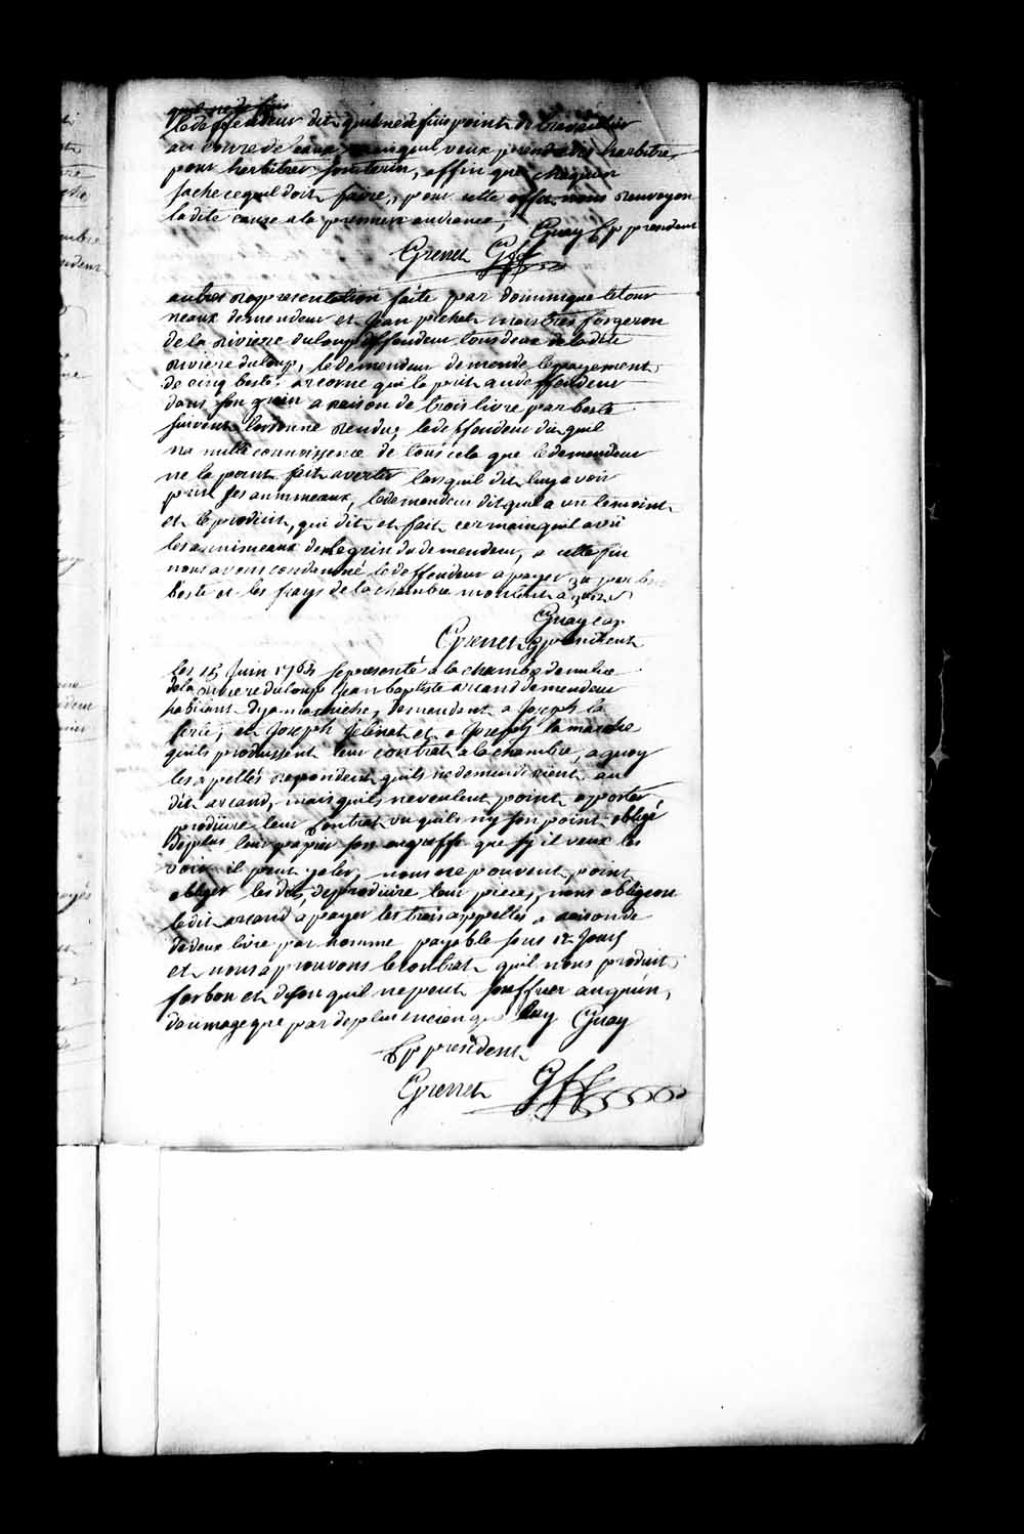 quil ne defuis
le deffendeur dit quil ne defuis point de travailler
au cours de eaux mais quil veux prendre des harbitre
pour harbitrer son terin, affin que chaquin
sache ce quil doit faire, pour cette effet nous renvoyon
la dite cause a la premiere audiance,
Guay Cp president
Grenet Gff
autres representation faite par dominique letour
neaux demendeur et Jean pichet maistres forgeron
de la riviere duloup deffendeur tous deux de la dite
riviere duloup, le demendeur demende le payement
de cinq beste a corne qui la prit au deffendeur
dans son grain a raison de trois livre par beste
suivent lordonne rendu, le deffendeur dit quil
na nulle connoissence de tous cela que le demendeur
ne la point fait avertir lors quil dit luy avoir
prit ses annimeaux, le demendeur dit quil a un temoint
et le produit, qui dit et fait serment quil a vü
les annimeaux dans le grin du demendeur, a cette fin
nous avons condamné le deffendeur a payer 3tt par
beste et les frays de la chambre montent a
Guay cap
Grenet president
Les 15 Juin 1763 se presenté a la chambre de milice
de la riviere duloup Jean baptiste arcand demendeur
habitant dyamachiche, demendent a Joseph la
ferté, et Joseph Gelinat et a Joseph lamarche
quils produissent leur contrat a la chambre, a quoy
les apellés repondent quils ne demendi rient au
dit arcand, mais quils ne veulent point aporter
produire leur contrat vu quils ny son point obligé
deplus leur papier son au greffe que sy il veux les
voir il peut y aler, nous ne pouvent point
obliger les dit, de produire leur pieces, nous obligeon
le dit arcand a payer les trois appellés a raison de
de deux livre par homme payable sous 12 Jours
et nous aprouvons le contrat quil nous produit
for bon et dison quil ne peut souffrer auquun,
daumage que par de plus encien que luy Guay
Cp president
Grenet Gff